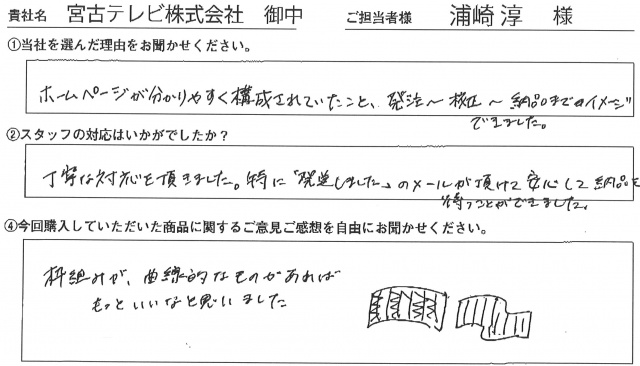 貴社名 宮古テレビ株式会社 御中 ご担当者様 浦崎 淳 様
①当社を選んだ理由をお聞かせください。
ホームページが分かりやすく構成されていたこと、発注〜校正〜納品までのイメージ
できました。
②スタッフの対応はいかがでしたか？
丁寧な対応を頂きました。特に「発送しました」のメールが頂けて安心して納品を
待つことができました。
④今回購入していただいた商品に関するご意見ご感想を自由にお聞かせください。
枠組みが、曲線的なものがあれば
もっといいなと思いました